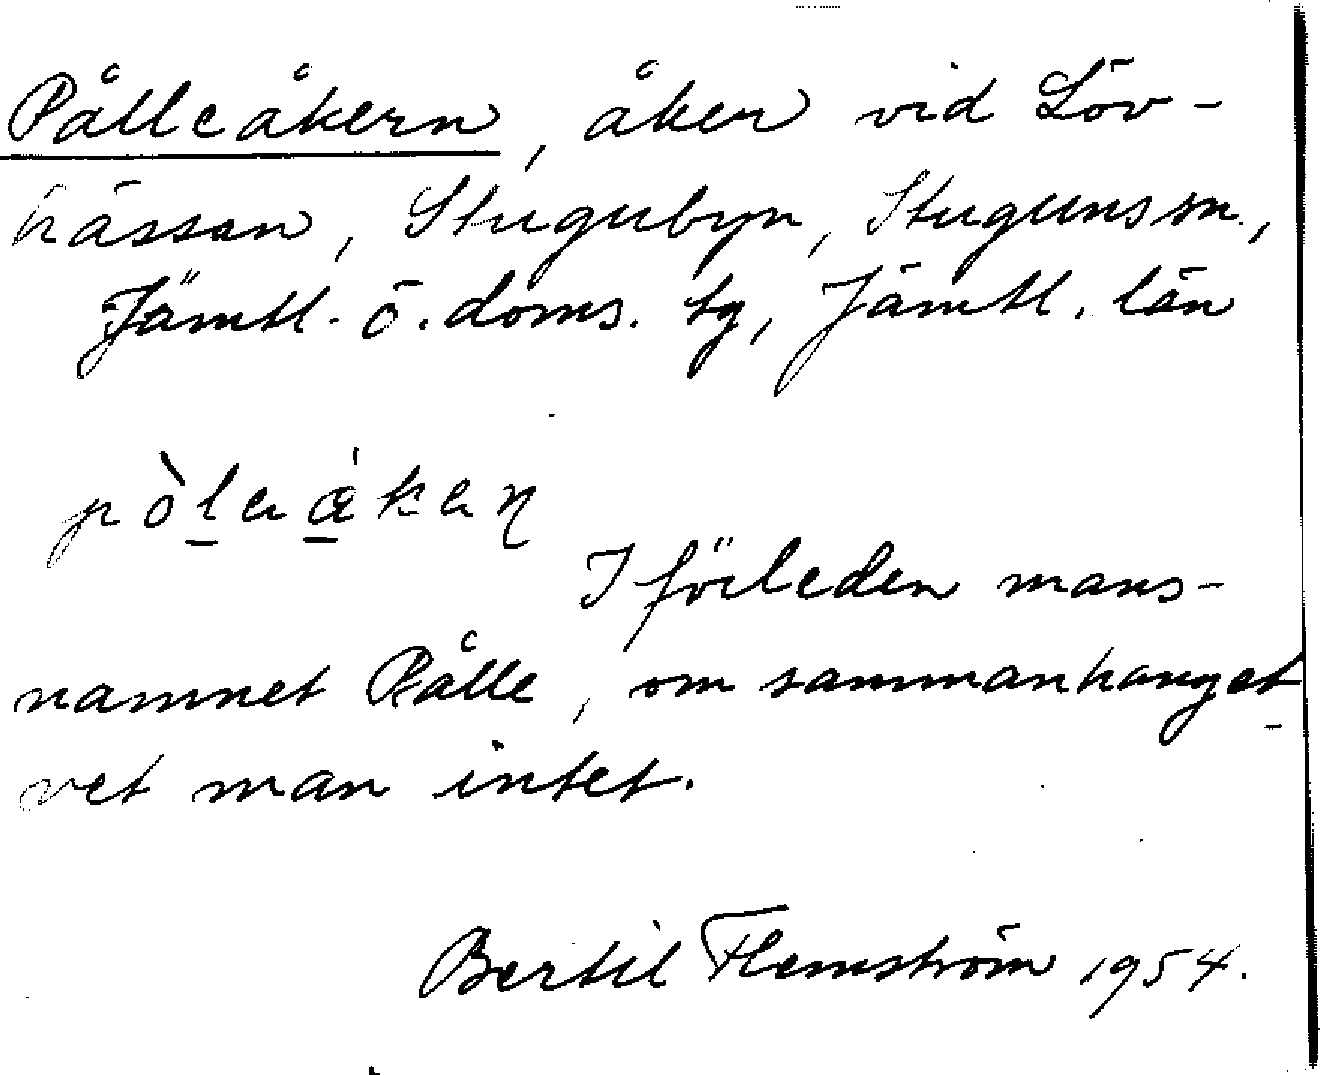 Pålleåkern, åker vid Löv-
hässan, Stugubyn, Stuguns sn.,
Jämtl. ö. doms. sg, Jämtl. län
I förleden mans-
namnet Pålle, om sammanhanget
vet man intet.
Bertil Flemström 1954.